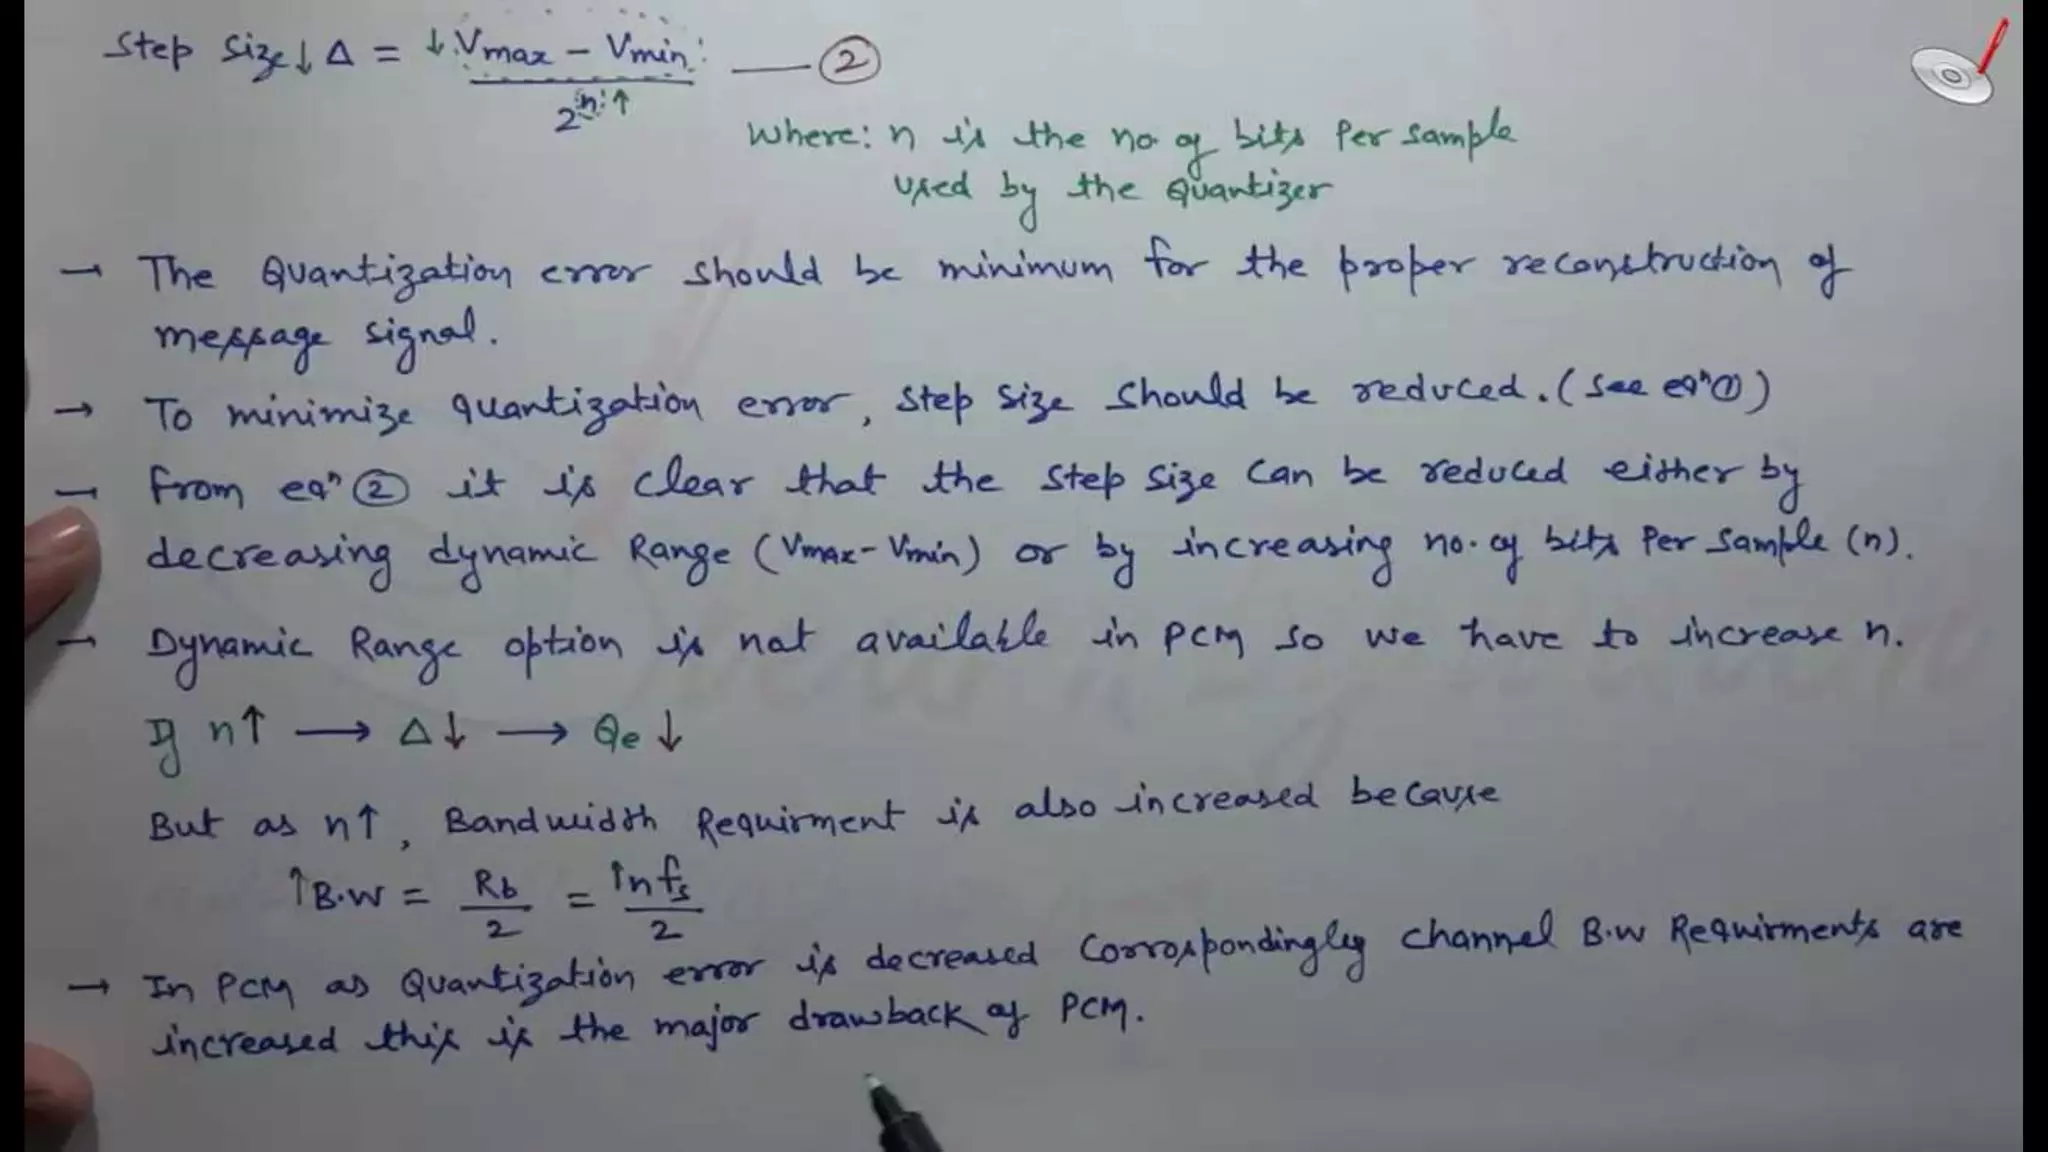 Step Size↓ Δ = ↓ Vmax - Vmin / 2^n↑ —— ②
Where: n is the no. of bits Per sample
used by the Quantizer
→ The Quantization error should be minimum for the proper reconstruction of
message signal.
→ To minimize quantization error, step size should be reduced. (see eqⁿ ①)
→ from eqⁿ ② it is clear that the step size can be reduced either by
decreasing dynamic Range (Vmax - Vmin) or by increasing no. of bits Per sample (n).
→ Dynamic Range option is not available in PCM so we have to increase n.
If n↑ → Δ↓ → Qe↓
But as n↑, Bandwidth Requirment is also increased because
↑B.W = Rb/2 = ↑nfs/2
→ In PCM as Quantization error is decreased Corrospondingley channel B.W Requirments are
increased this is the major drawback of PCM.